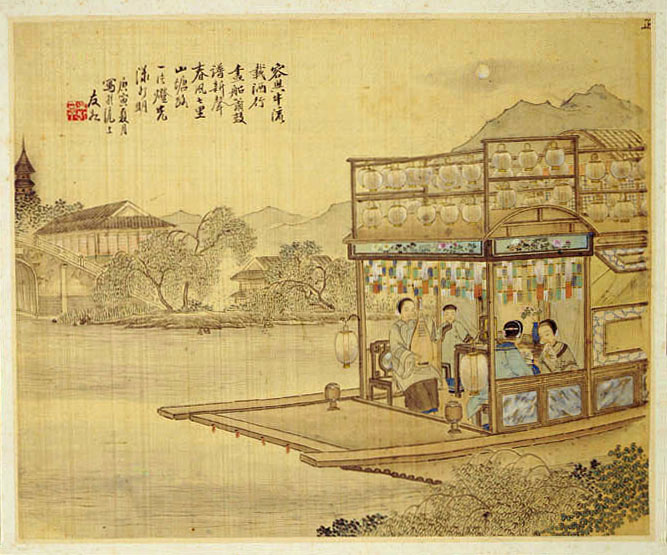 容與中流
載酒行
畫船簫鼓
譜新聲
春風七里
山塘路
一片燈光
漾明
庚寅夏月
寫於滬上
友如